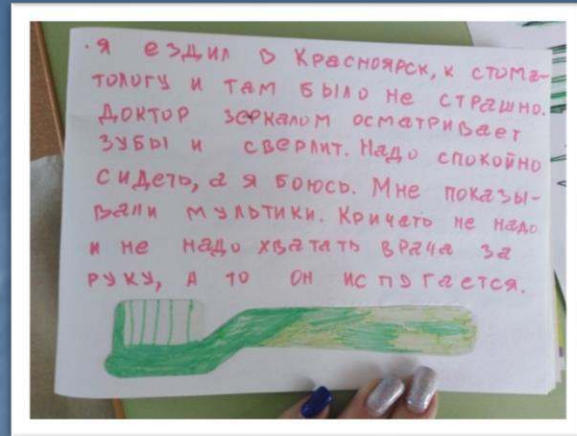 .Я ездил в Красноярск, к стома-
тологу и там было не страшно.
Доктор зеркалом осматривает
зубы и сверлит. Надо спокойно
сидеть, а я боюсь. Мне показы-
вали мультики. Кричать не надо
и не надо хватать врача за
руку, а то он испугается.